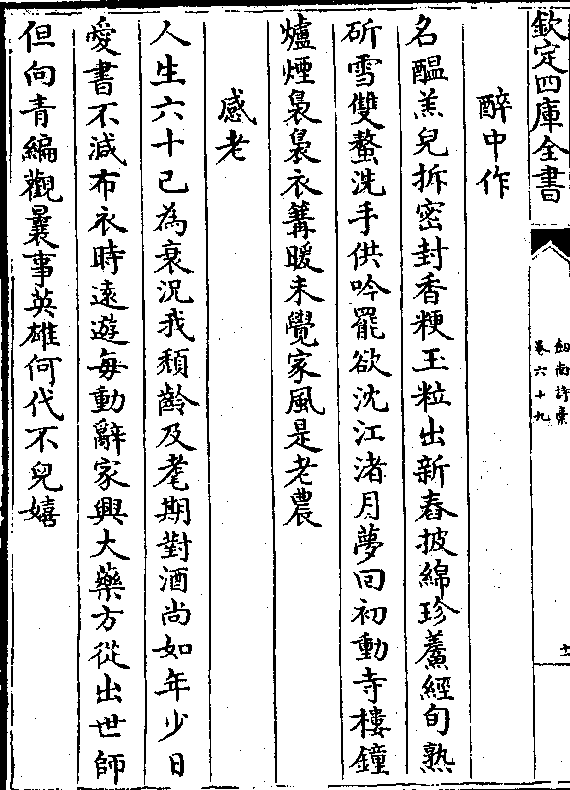 欽定四庫全書
劍南詩稾
卷六十九
十
醉中作
名醞羔兒拆密封香粳玉粒出新舂披綿珍鲞經旬熟
斫雪雙螯洗手供吟罷欲沈江渚月夢回初動寺樓鐘
爐煙裊裊衣篝暖未覺家風是老農
感老
人生六十已為衰況我頹齡及耄期對酒尚如年少日
愛書不減布衣時遠遊每動辭家興大藥方從出世師
但向青編觀曩事英雄何代不兒嬉